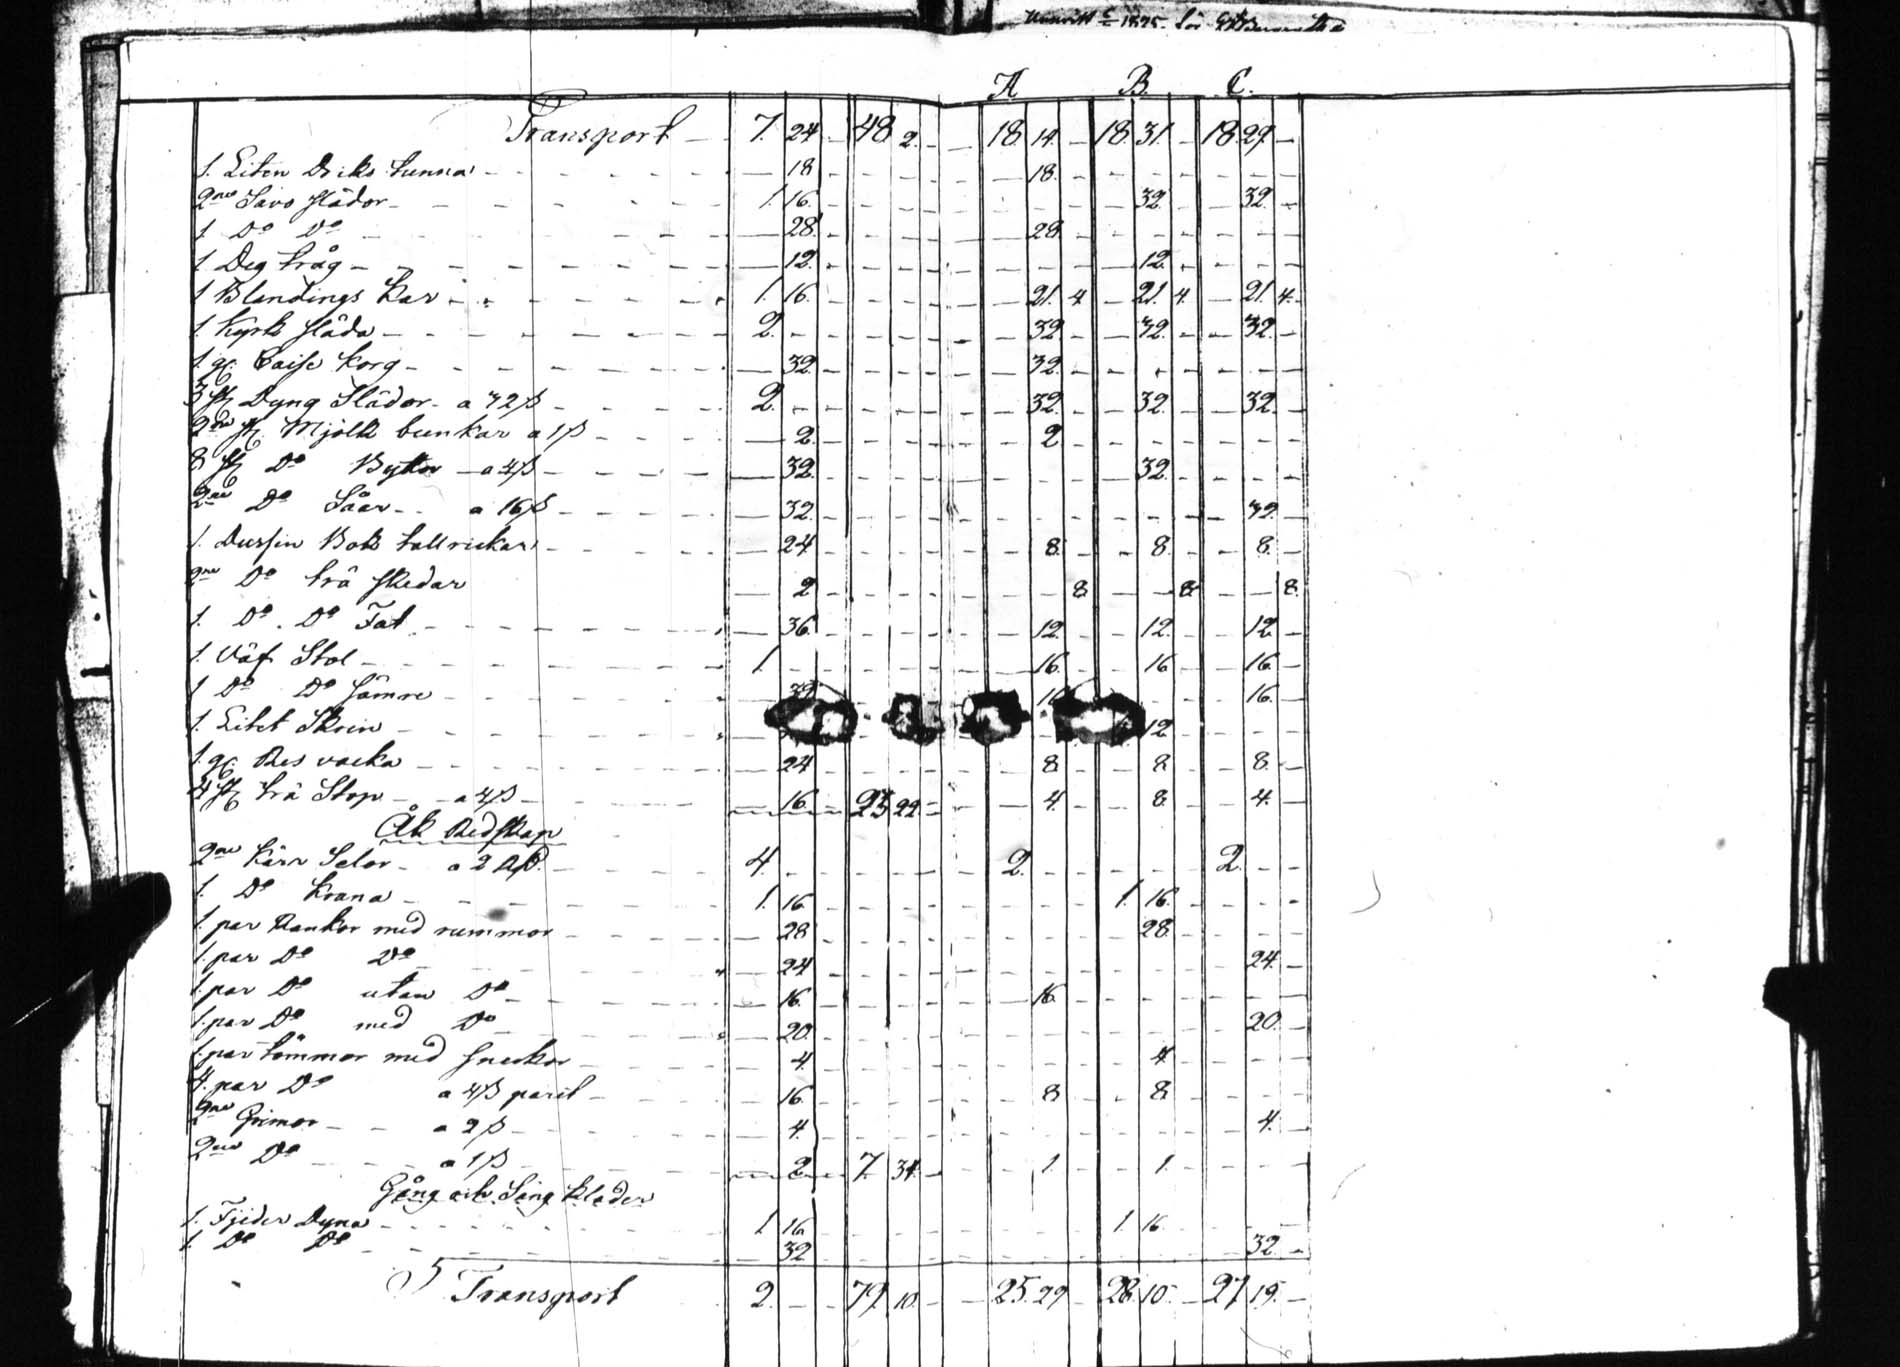 A B C.
Transport 7. 24 48 2. 18. 14. 18. 31. 18. 29.
1. Liten Driks tunna 18 18.
2ne Slädor 1. 16. 32. 32.
1 Do Do 28. 28.
1 Deg tråg 12. 12.
1 Blandings Kar 1. 16. 21. 4. 21. 4. 21. 4.
1. Kyrk släda 2. 32. 32. 32.
1. gl. Korg 32. 32.
3 st Dyng Slädor a 32 ß 2. 32. 32. 32.
2ne st Mjölk bunkar a 1 ß 2. 2.
8 st Do Byttor a 4 ß 32. 32.
2ne Do Såar a 16 ß 32. 32.
1. Dussin Bok tallrickar 24 8. 8. 8.
2ne Do trä skedar 2 8 8 8.
1. Do Do Fat 36. 12. 12. 12.
1. Väf Stol 1. 16. 16 16.
1 Do Do sämre 32 16 16.
1. Litet Skrin 12
1. gl. Res vacka 24 8. 8. 8.
4 st trä Stop a 4 ß 16. 23 22 4. 8. 4.
Åk Redskap
2ne Kärr Selar a 2 4. 2. 2.
1. Do Krana 1. 16. 1. 16.
1. par Rankor med remmor 28 28.
1. par Do Do 24 24.
1. par Do utan Do 16. 16.
1. par Do med Do 20. 20.
1. par tömmar med 4. 4.
4. par Do a 4 ß parit 16. 8. 8.
2ne Grimor a 2 ß 4. 4.
2ne Do a 1 ß 2 7. 34. 1. 1.
Gång och Säng Kläder
1. Fjeder Dyna 1 16 1. 16.
1. Do Do 32 32.
Transport 2. 79. 10. 25. 29 28. 10. 27. 19.